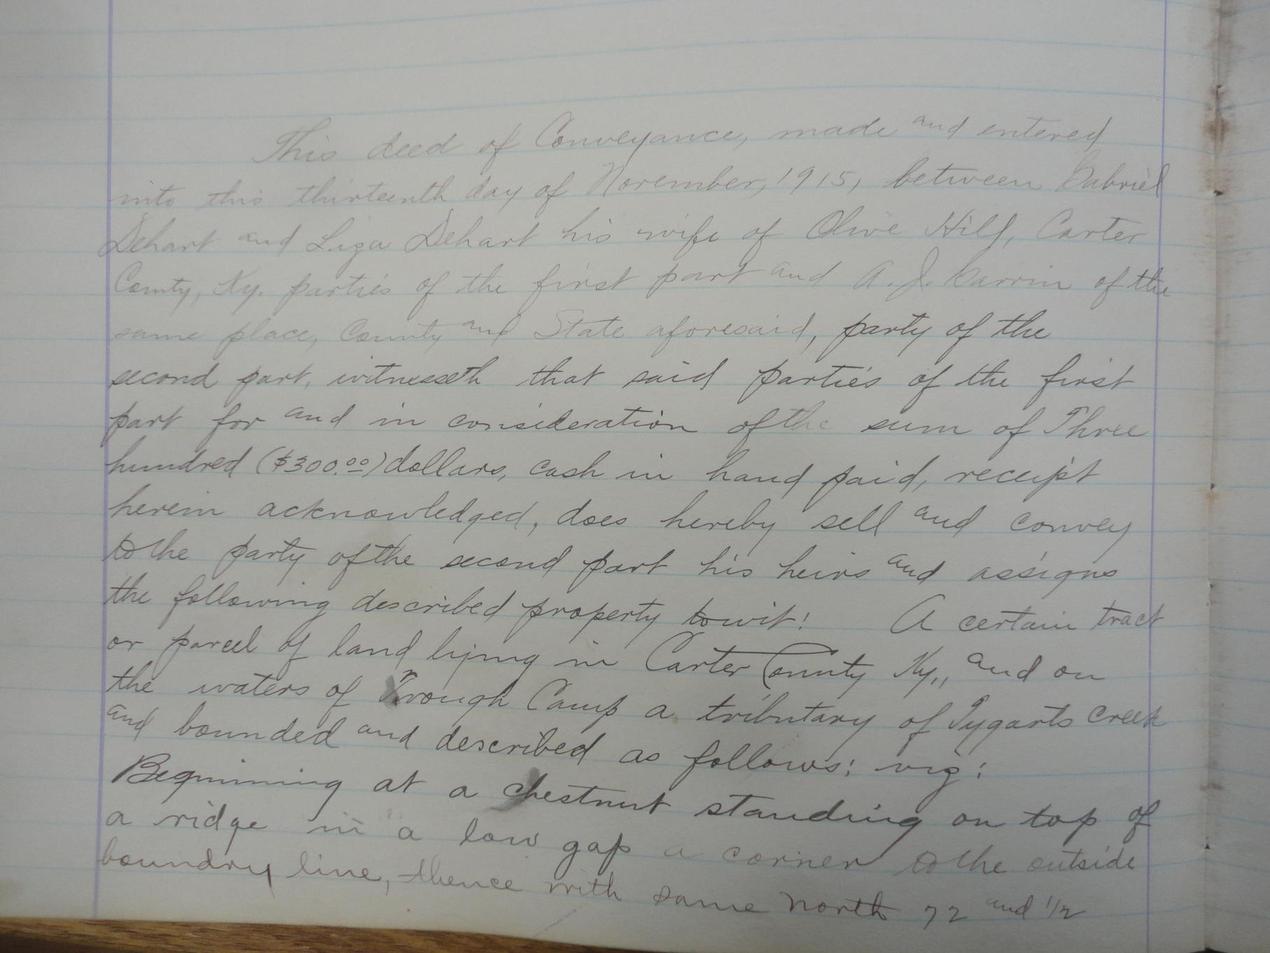 This deed of Conveyance, made and entered
into this thirteenth day of November, 1915, between Gabriel
Dehart and Liza Dehart his wife of Olive Hill, Carter
County, Ky. parties of the first part and A. J. of the
same place, County and State aforesaid, party of the
second part, witnesseth that said parties of the first
part for and in consideration of the sum of Three
hundred ($300.00) dollars, cash in hand paid, receipt
herein acknowledged, does hereby sell and convey
to the party of the second part his heirs and assigns
the following described property towit: A certain tract
or parcel of land lying in Carter County Ky., and on
the waters of Trough Camp a tributary of Tygarts Creek
and bounded and described as follows: viz:
Beginning at a chestnut standing on top of
a ridge in a low gap a corner to the outside
boundry line, thence with same North 72 and 1/2